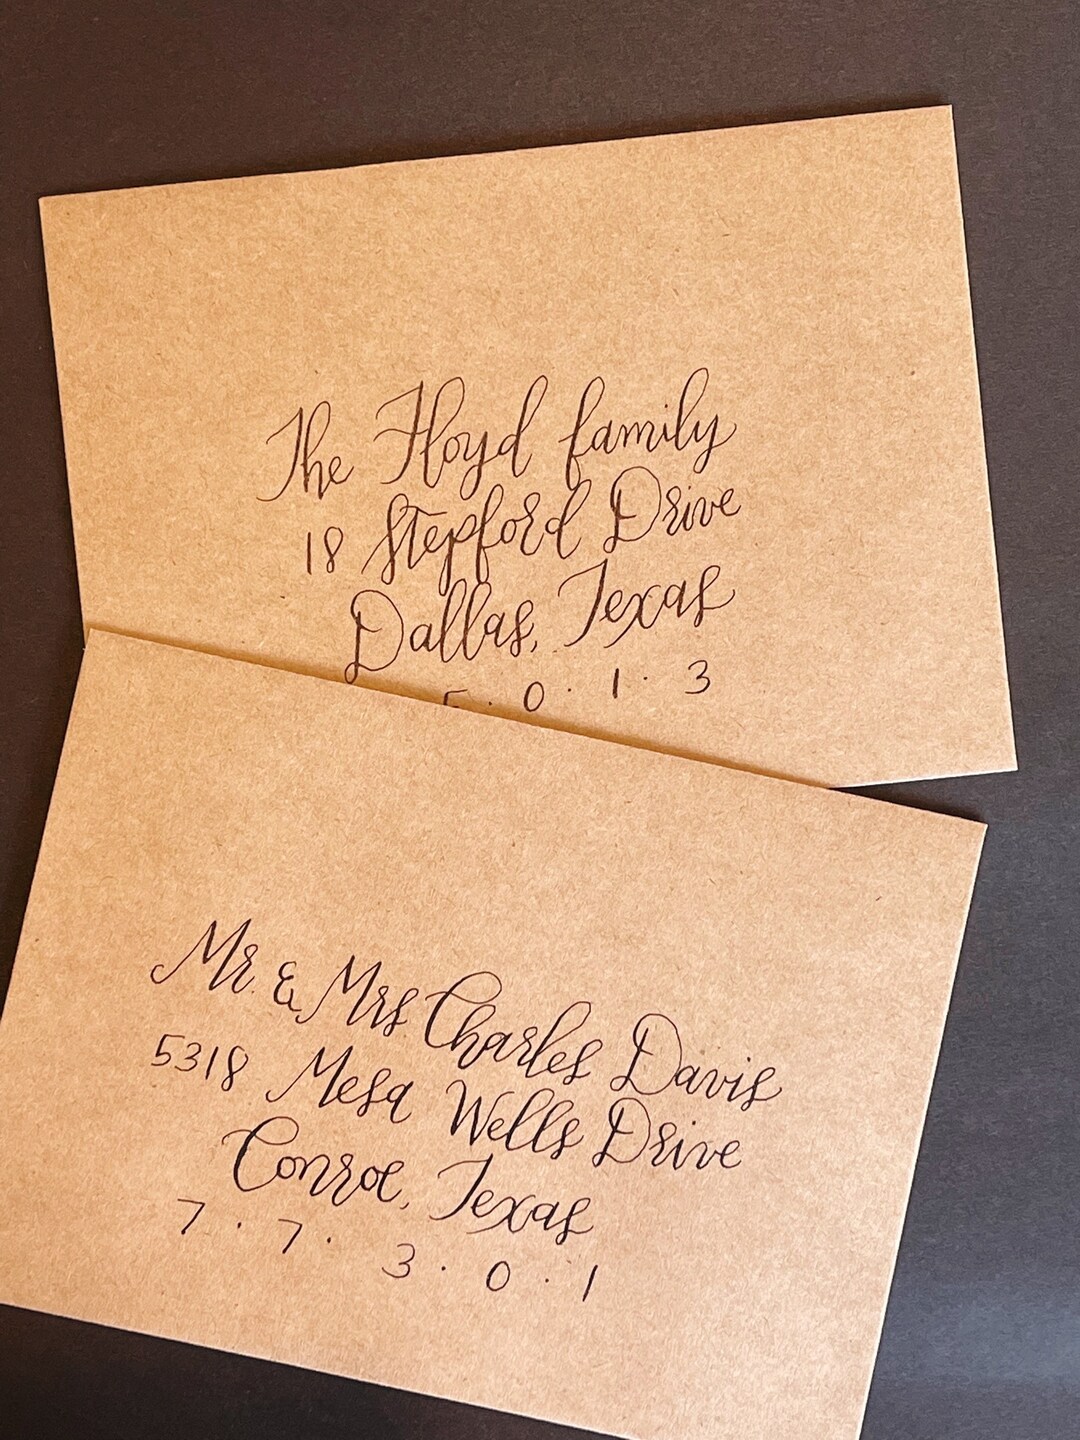 The Floyd family
18 Stepford Drive
Dallas, Texas
5 · 0 · 1 · 3
Mr. & Mrs Charles Davis
5318 Mesa Wells Drive
Conroe, Texas
7 · 7 · 3 · 0 · 1